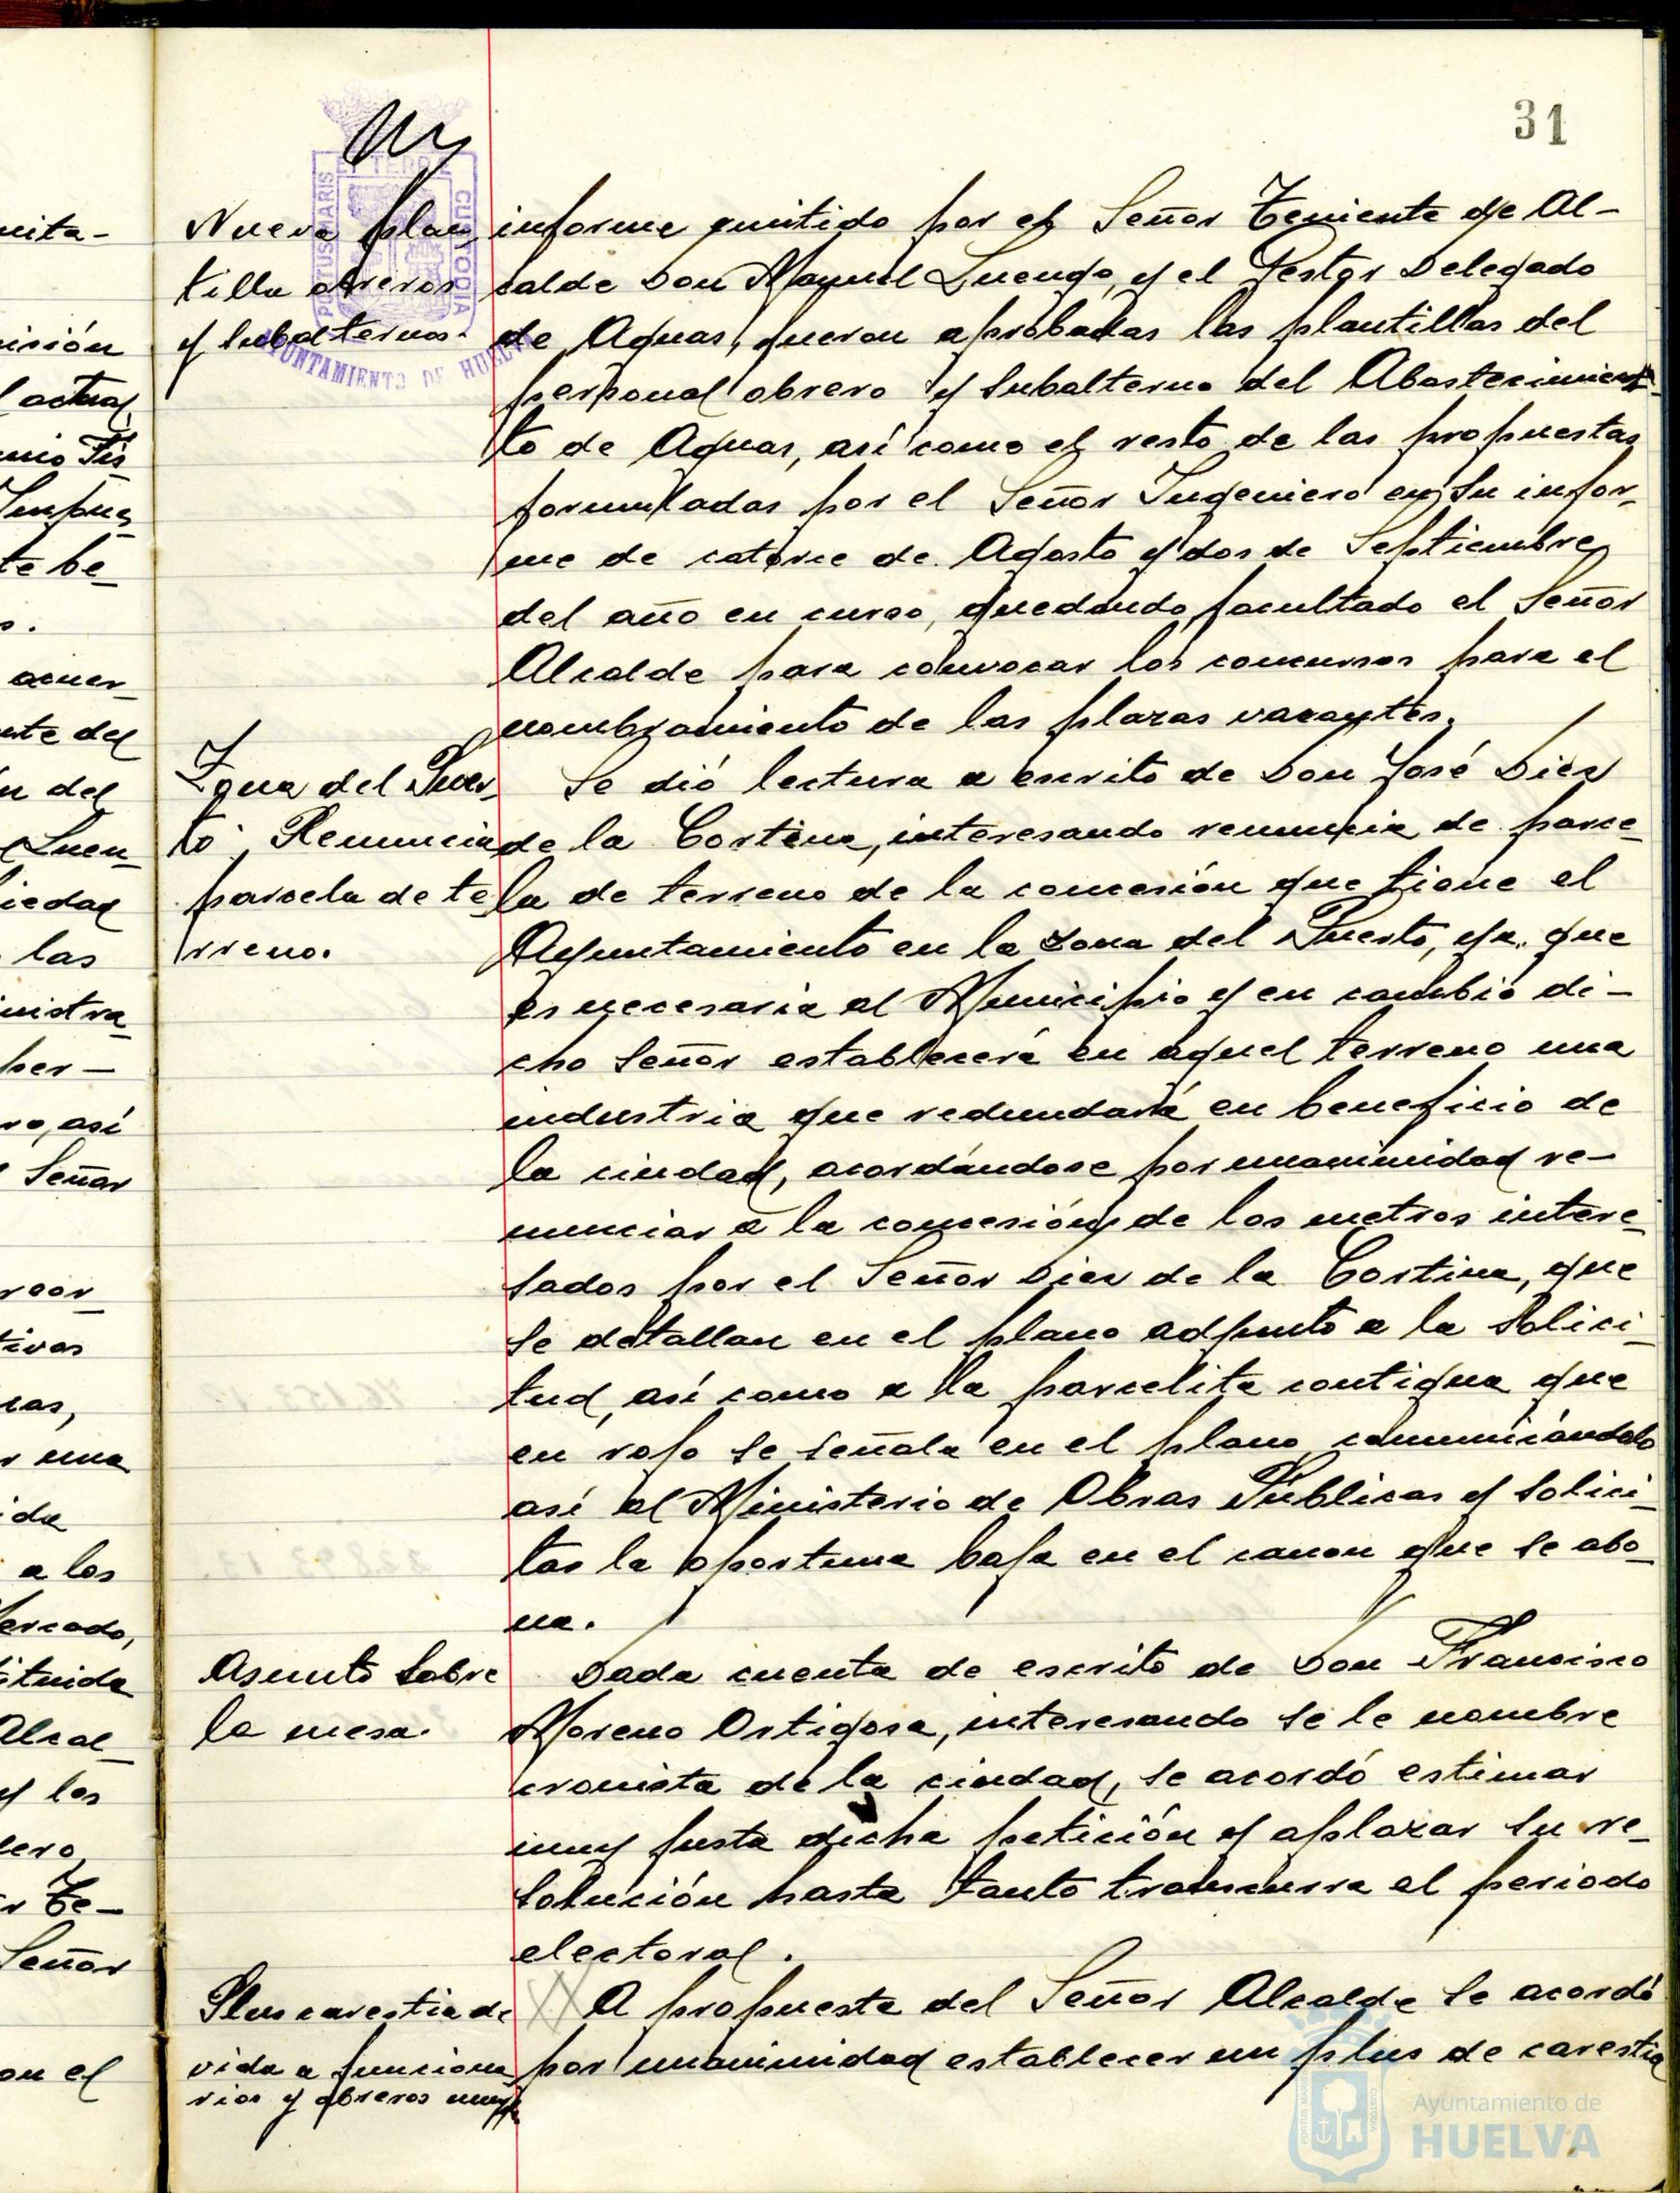 31
PORTUS MARIS
ET TERRE
CUSTODIA
AYUNTAMIENTO DE HUELVA
Nueva plan
tilla obreros
y subalternos.
informe emitido por el Señor Teniente de Al-
calde Don Manuel Luengo, y el Gestor Delegado
de Aguas, fueron aprobadas las plantillas del
personal obrero y subalterno del Abastecimien-
to de Aguas, así como el resto de las propuestas
formuladas por el Señor Ingeniero en su infor-
me de catorce de Agosto y dos de Septiembre
del año en curso, quedando facultado el Señor
Alcalde para convocar los concursos para el
nombramiento de las plazas vacantes.
Zona del Puer-
to. Renuncia
parcela de te-
rreno.
Se dió lectura a escrito de Don José Diez
de la Cortina, interesando renuncia de parce-
la de terreno de la concesión que tiene el
Ayuntamiento en la zona del Puerto, ya que
es necesaria al Municipio y en cambio di-
cho Señor establecerá en aquel terreno una
industria que redundará en beneficio de
la ciudad, acordándose por unanimidad re-
nunciar a la concesión de los metros intere-
sados por el Señor Diez de la Cortina, que
se detallan en el plano adjunto a la solici-
tud, así como a la parcelita contigua que
en rojo se señala en el plano, comunicándolo
así al Ministerio de Obras Públicas y solici-
tar la oportuna baja en el canon que se abo-
na.
Asunto sobre
la mesa.
Dada cuenta de escrito de Don Francisco
Moreno Ortigosa, interesando se le nombre
cronista de la ciudad, se acordó estimar
muy justa dicha petición y aplazar su re-
solución hasta tanto transcurra el periodo
electoral.
Plus carestia de
vida a funciona
rios y obreros
A propuesta del Señor Alcalde se acordó
por unanimidad establecer un plus de carestia
mita-
isión
actual
te be-
acuer-
nte del
n del
Luen-
iedad
las
nistra-
per-
ro, así
Señor
tivos
cas,
r una
ida
a los
Mercado,
tituida
Alcal-
y los
r Te-
Señor
on el
Ayuntamiento de
HUELVA